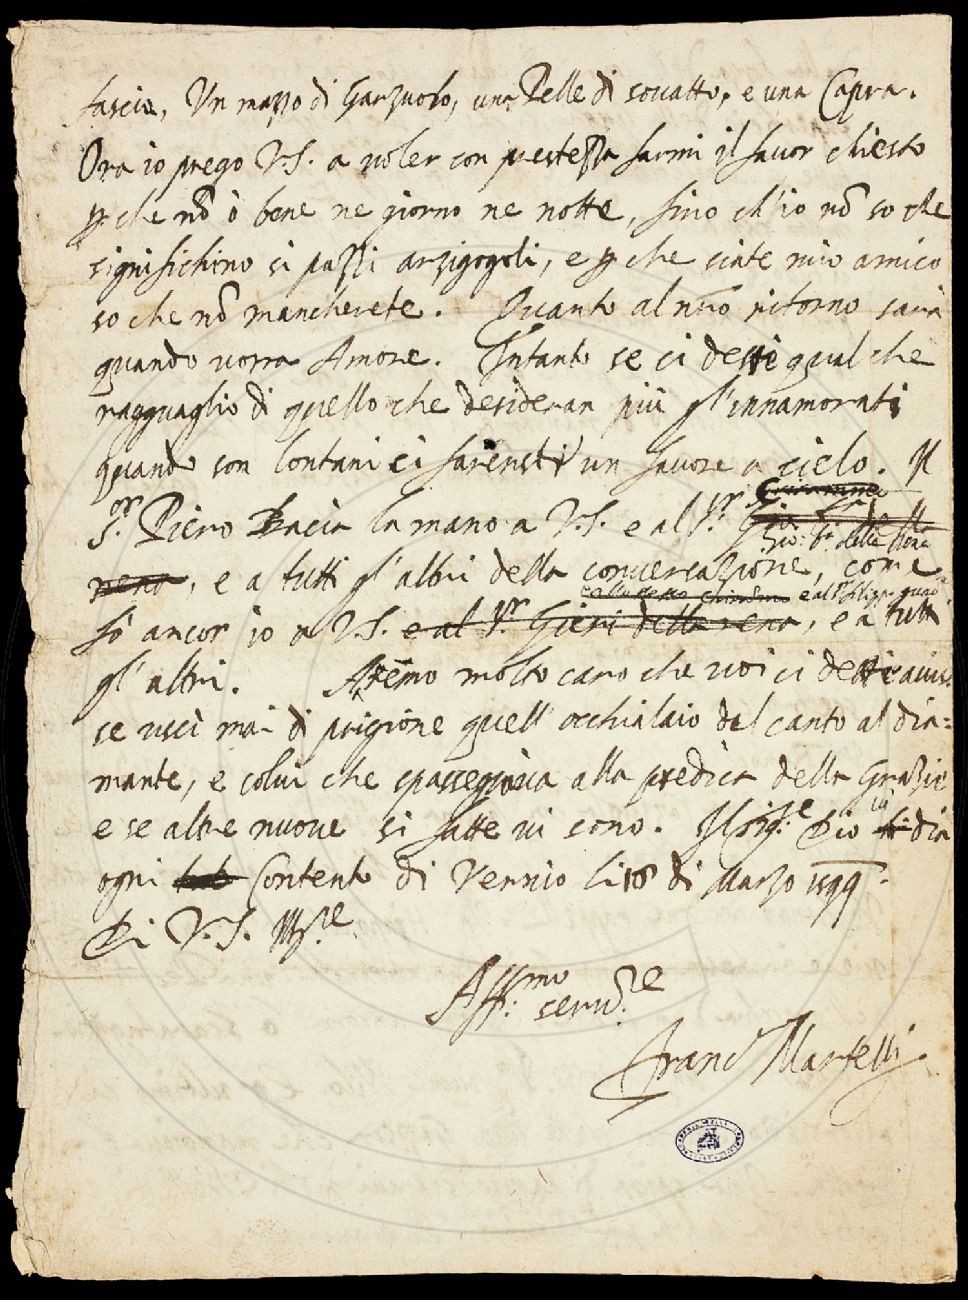 fascio, Un mazzo di Garzuolo, una Pelle di souatto, e una Capra.
Ora io prego V.S. a uoler con prestezza farmi il fauor chiesto
p che nõ ò bene ne giorno ne notte, fino ch'io nõ so che
significhino si pazzi arzigogoli, e p che siate mio amico
so che nõ mancherete. Quanto al nrõ ritorno sarà
quando uorra Amore. Intanto se ci deste qual che
ragguaglio di quello che desideran più gl'innamorati
quando son lontani ci faresti un fauore a cielo. Il
S.or Piero Bacia la mano a V.S. e al S.r
Gio: b.a della Rena
, e a tutti gl'altri della conuersazione, come
e al S.r Filippo
fò ancor io a V.S. e al S.r Gieri della rena, e a tutti
gl'altri. Aremo molto caro che uoi ci deste auiso
se uscì mai di prigione quell'occhialaio dal canto al dia=
mante, e colui che spasseggiaua alla predica della Grazia
e se altre nuoue si fatte ui sono. Il Sig.re Dio ui dia
ogni Contento di Vernio li 18 di Marzo 1599.
Di V.S. Ill.re
Aff.mo seru.re
Franc.o Martelli